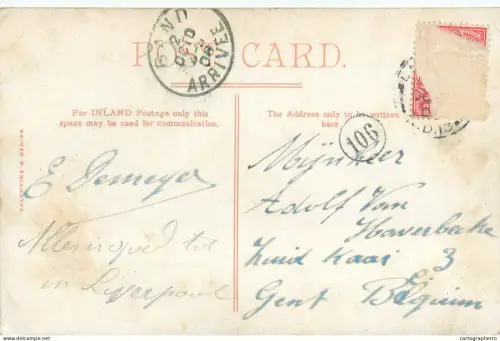 POST CARD.
GAND
12
OCTO
06
ARRIVEE
For INLAND Postage only this
space may be used for communication.
The Address only to be written
here
106
VALENTINE'S SERIES
E Demeyer
in Liverpool
Mijnheer
Adolf Van
Haverbeke
Zuid Kaai 3
Gent Belgium
cartographero | www.delcampe.net